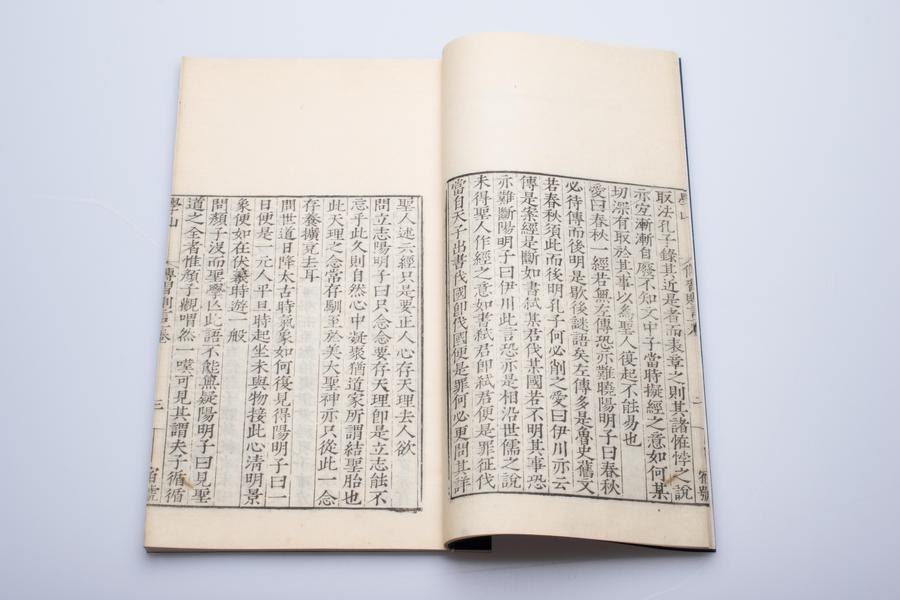 取法孔子錄其近是者而表章之則其諸恠悖之說
亦宐漸漸自廢不知文中子當時擬經之意如何某
切深有取於其事以為聖人復起不能易也
愛曰春秋一經若無左傳恐亦難曉陽明子曰春秋
必待傳而後明是歇後謎語矣左傳多是魯史舊文
若春秋須此而後明孔子何必削之愛曰伊川亦云
傳是案經是斷如書弑某君伐某國若不明其事恐
亦難斷陽明子曰伊川此言恐亦是相沿世儒之說
未得聖人作經之意如書弑君即弑君便是罪征伐
當自天子出書伐國即伐國便是罪何必更問其詳
聖人述六經只是要正人心存天理去人欲
問立志陽明子曰只念念要存天理即是立志能不
忘乎此久則自然心中凝聚猶道家所謂結聖胎也
此天理之念常存馴至於美大聖神亦只從此一念
存養擴充去耳
問世道日降太古時氣象如何復見得陽明子曰一
日便是一元人平旦時起坐未與物接此心清明景
象便如在伏羲時遊一般
問顏子沒而聖學亡此語不能無疑陽明子曰見聖
道之全者惟顏子觀喟然一嘆可見其謂夫子循循
學山
三